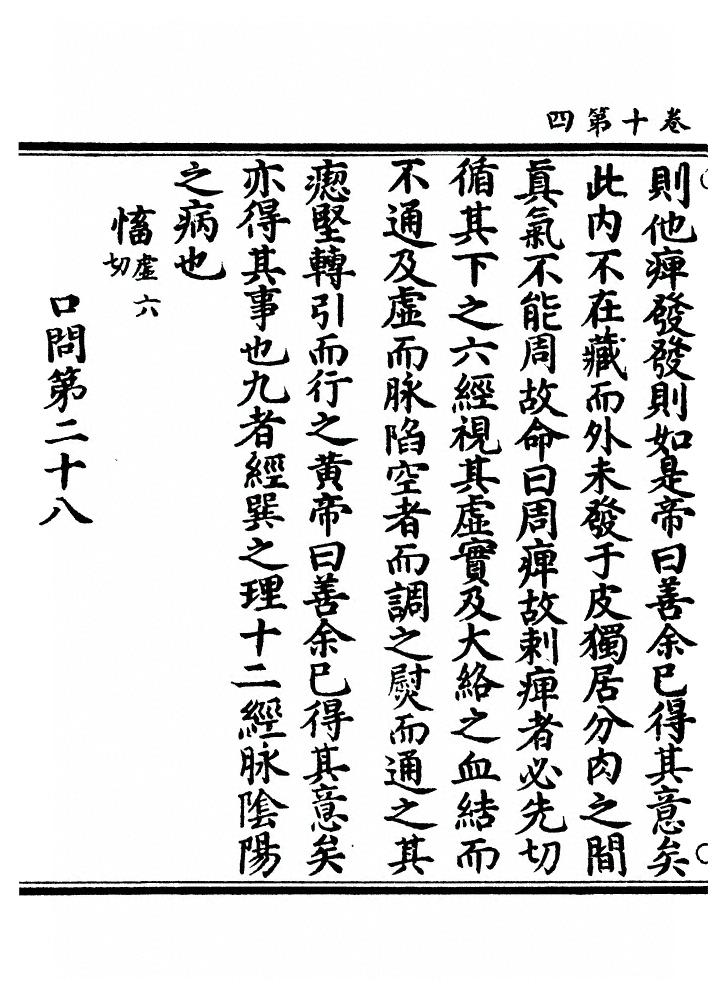 卷十第四
則他痺發發則如是帝曰善余已得其意矣
此内不在藏而外未發于皮獨居分肉之間
真氣不能周故命曰周痺故刺痺者必先切
循其下之六經視其虛實及大絡之血結而
不通及虛而脉陷空者而調之熨而通之其
瘛堅轉引而行之黄帝曰善余已得其意矣
亦得其事也九者經巽之理十二經脉陰陽
之病也
慉虛六切
口問第二十八